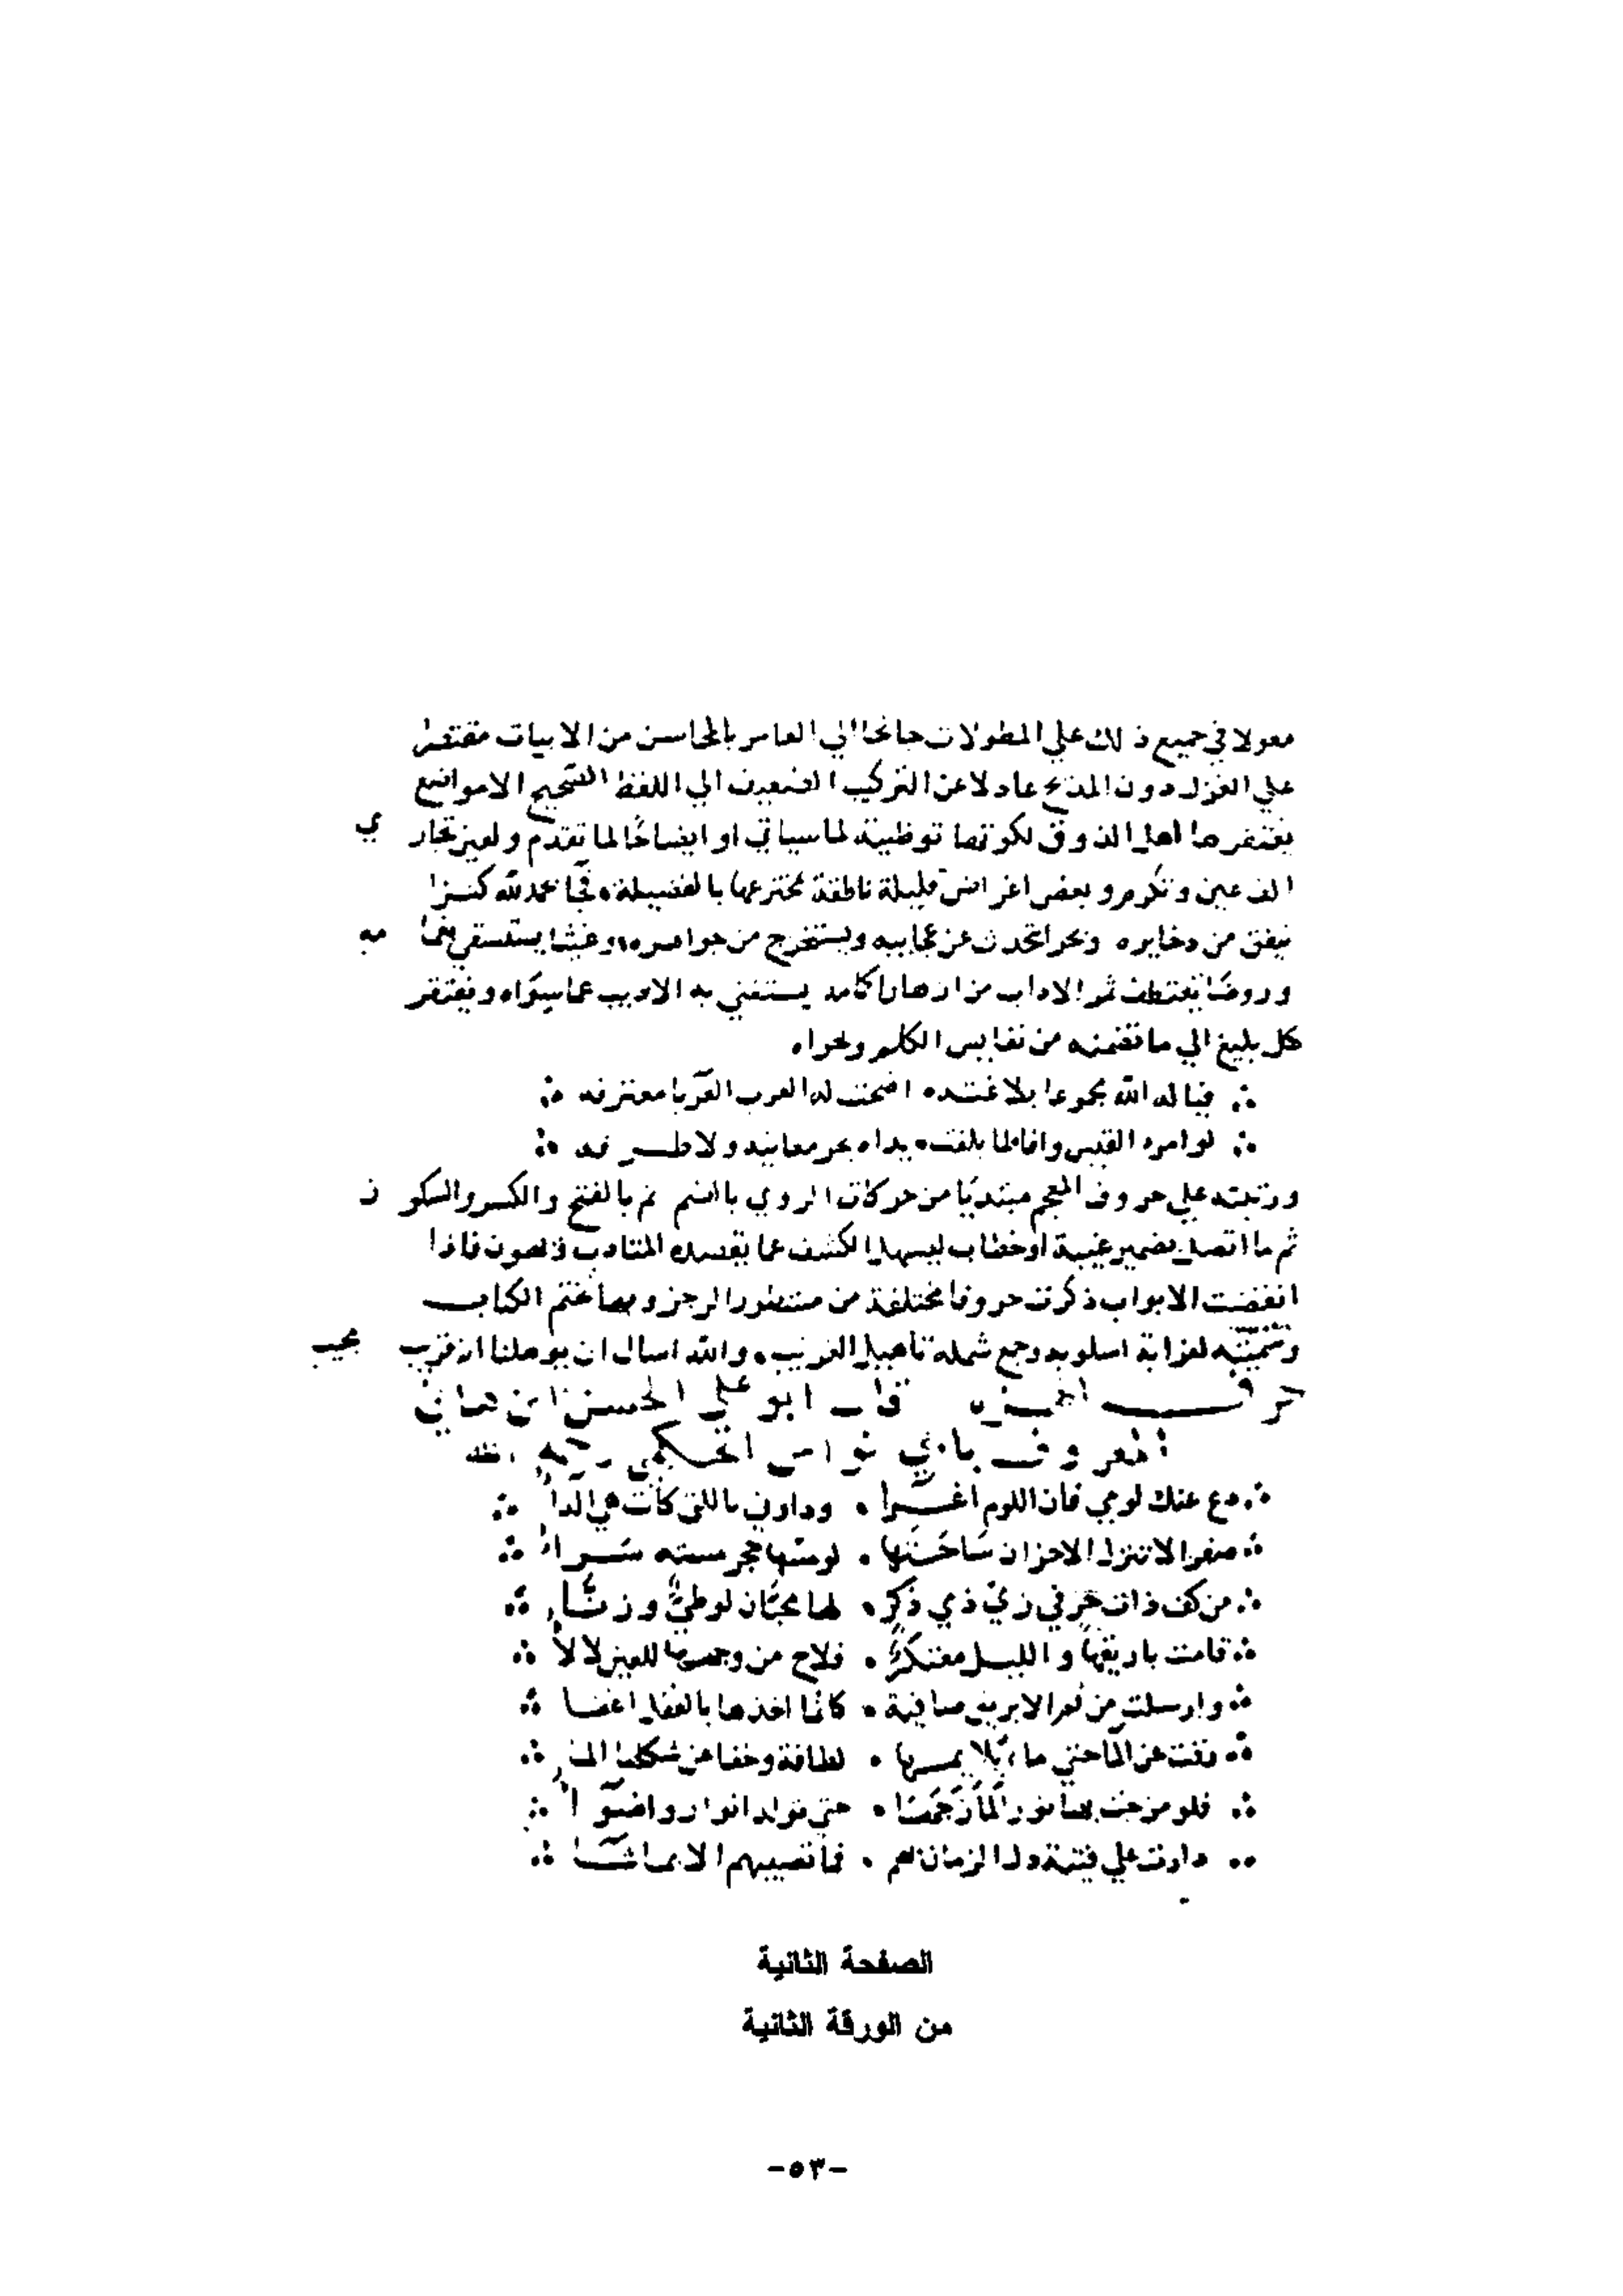 معولا في جميع ذلك علي المطولات جانحا الي العامر بالمحاسن من الابيات مقتصرا
علي الغزل دون المديح عادلا عن التركيب الضعيف الي اللفظ الصحيح الا مواضع
يغتفرها اهل الذوق لكونها توطية لما سياتي او ايضاحا لما تقدم ولعين تجاري
الف عين وتكرم وبعض اغراض قليلة ناطقة مخترعها بالفضيلة فجا بحمد لله كنزا
ينفق من دخايره وبحرا تحدث عن عجايبه ويستخرج من جواهره وغيثا يستسقي
وروضا يقتطف ثمر الاداب من ازهار يستغني به الاديب عما سواه ويفتقر
كل بليغ الي ما تضمنه من نفايس الكلم وحواه
∴ فيا له الله مجموعا بلاغته اضحت لها العرب العربا معترفه ∴
∴ لو امرء القيس وافاها بلغت يداه بحر معانيه ولا طرفه ∴
ورتبته علي حروف المعجم مبتديا من حركات الروي بالضم ثم بالفتح والكسر والسكون
ثم ما اتصل بضمير غيبة او خطاب ليسهل الكشف عما يقصده المتادب فاذا
انقضت الابواب ذكرت حروفا مختلفة من مشطور الرجز وبها اختم الكتاب
وسميته لغرابة اسلوبه وجمع شمله تاهيل الغريب والله اسال ان يوهلنا انه قريب مجيب
حرف الهمزه قال ابو علي الحسن ابن هاني
المعروف بابي نواس الحكمي رحمه الله
∴ دع عنك لومي فان اللوم اغرا ٠ وداوني باللتي كانت هي الدا ∴
∴ صفرا لا تنزل الاحزان ساحتها ٠ لو مسها حجر مسته سراء ∴
∴ من كف ذات حر في زي ذي ذكر ٠ لها محبان لوطي وزنا ∴
∴ قامت باريقها والليل معتكر ٠ فلاح من وجهها للعين لالا ∴
∴ وارسلت من فم الابريق صافية ٠ كانما اخذها بالعقل اغفا ∴
∴ رقت عن الما حتي ما يلايمها ٠ لطافة وجفا عن شكلها الما ∴
∴ فلو مزجت بها نورا لمازجها ٠ حتي تولد انوار واضوا ∴
∴ دارت علي فتية دل الزمان لهم ٠ فما تصيبهم الا بما شاا ∴
الصفحة الثانية
من الورقة الثانية
-٥٣-